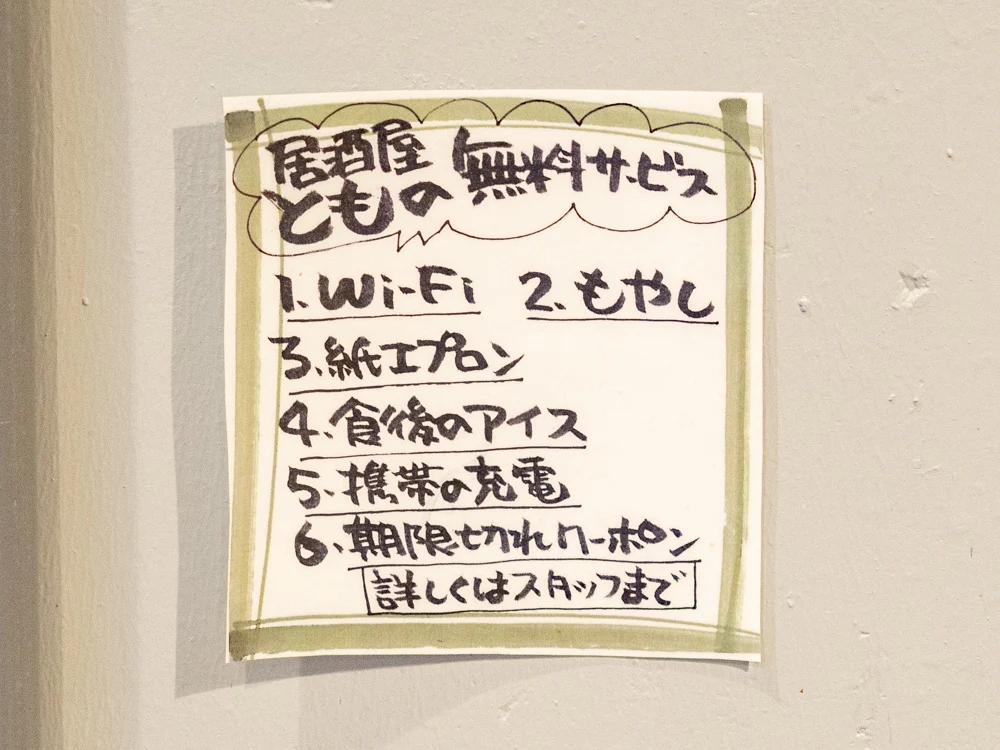 居酒屋
ともの
無料サービス
1.Wi-Fi 2.もやし
3.紙エプロン
4.食後のアイス
5.携帯の充電
6.期限切れクーポン
詳しくはスタッフまで